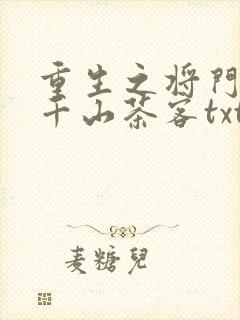 重生之将門
千山茶客txt
麦糖兒